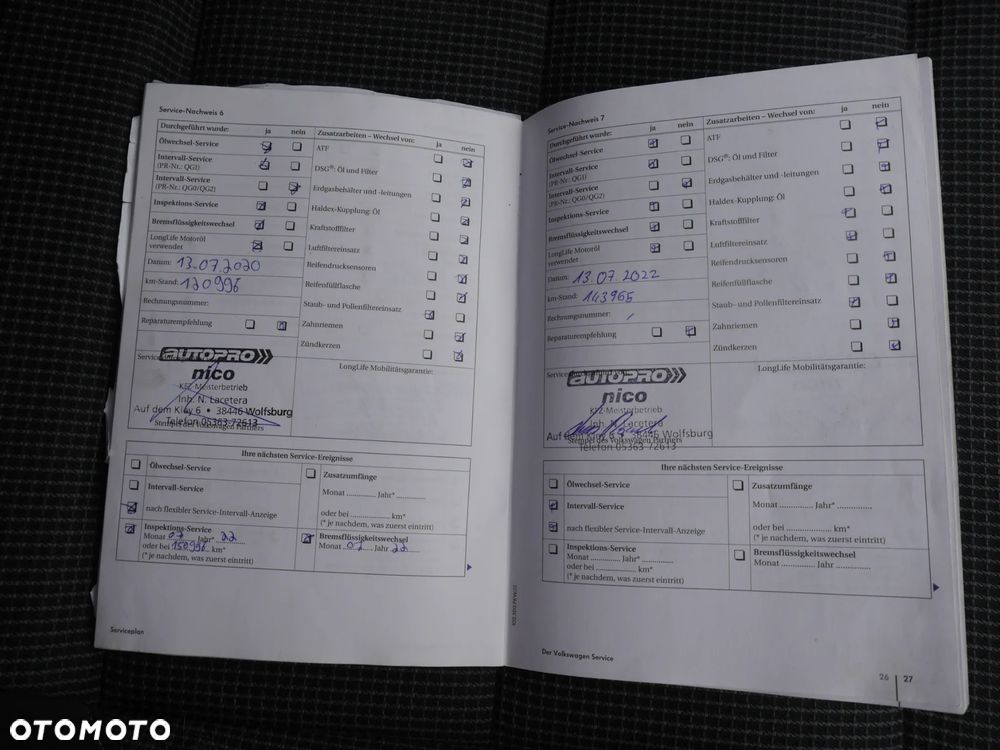 Service-Nachweis 6
Durchgeführt wurde: ja nein
Ölwechsel-Service
Intervall-Service
(PR-Nr.: QG1)
Intervall-Service
(PR-Nr.: QG0/QG2)
Inspektions-Service
Bremsflüssigkeitswechsel
LongLife Motoröl
verwendet
Datum: 13.07.2020
km-Stand: 120996
Rechnungsnummer:
Reparaturempfehlung
Zusatzarbeiten – Wechsel von: ja nein
ATF
DSG®: Öl und Filter
Erdgasbehälter und -leitungen
Haldex-Kupplung: Öl
Kraftstofffilter
Luftfiltereinsatz
Reifendrucksensoren
Reifenfüllflasche
Staub- und Pollenfiltereinsatz
Zahnriemen
Zündkerzen
AUTOPRO
nico
KFZ-Meisterbetrieb
Inh. N. Lacetera
Auf dem Klay 6 • 38446 Wolfsburg
Telefon 05363-72613
Stempel des Volkswagen Partners
LongLife Mobilitätsgarantie:
Ihre nächsten Service-Ereignisse
Ölwechsel-Service
Intervall-Service
nach flexibler Service-Intervall-Anzeige
Inspektions-Service
Monat 07 Jahr* 22
oder bei 150996 km*
(* je nachdem, was zuerst eintritt)
Zusatzumfänge
Monat .............. Jahr* ..............
oder bei .............. km*
(* je nachdem, was zuerst eintritt)
Bremsflüssigkeitswechsel
Monat 07 Jahr 22
Serviceplan
Service-Nachweis 7
Durchgeführt wurde: ja nein
Ölwechsel-Service
Intervall-Service
(PR-Nr.: QG1)
Intervall-Service
(PR-Nr.: QG0/QG2)
Inspektions-Service
Bremsflüssigkeitswechsel
LongLife Motoröl
verwendet
Datum: 13.07.2022
km-Stand: 143965
Rechnungsnummer:
Reparaturempfehlung
Zusatzarbeiten – Wechsel von: ja nein
ATF
DSG®: Öl und Filter
Erdgasbehälter und -leitungen
Haldex-Kupplung: Öl
Kraftstofffilter
Luftfiltereinsatz
Reifendrucksensoren
Reifenfüllflasche
Staub- und Pollenfiltereinsatz
Zahnriemen
Zündkerzen
AUTOPRO
nico
KFZ-Meisterbetrieb
Inh. N. Lacetera
38446 Wolfsburg
Stempel des Volkswagen Partners
Telefon 05363-72613
LongLife Mobilitätsgarantie:
Ihre nächsten Service-Ereignisse
Ölwechsel-Service
Intervall-Service
nach flexibler Service-Intervall-Anzeige
Inspektions-Service
Monat .............. Jahr* ..............
oder bei .............. km*
(* je nachdem, was zuerst eintritt)
Zusatzumfänge
Monat .............. Jahr* ..............
oder bei .............. km*
(* je nachdem, was zuerst eintritt)
Bremsflüssigkeitswechsel
Monat .............. Jahr ..............
Der Volkswagen Service
26 27
OTOMOTO